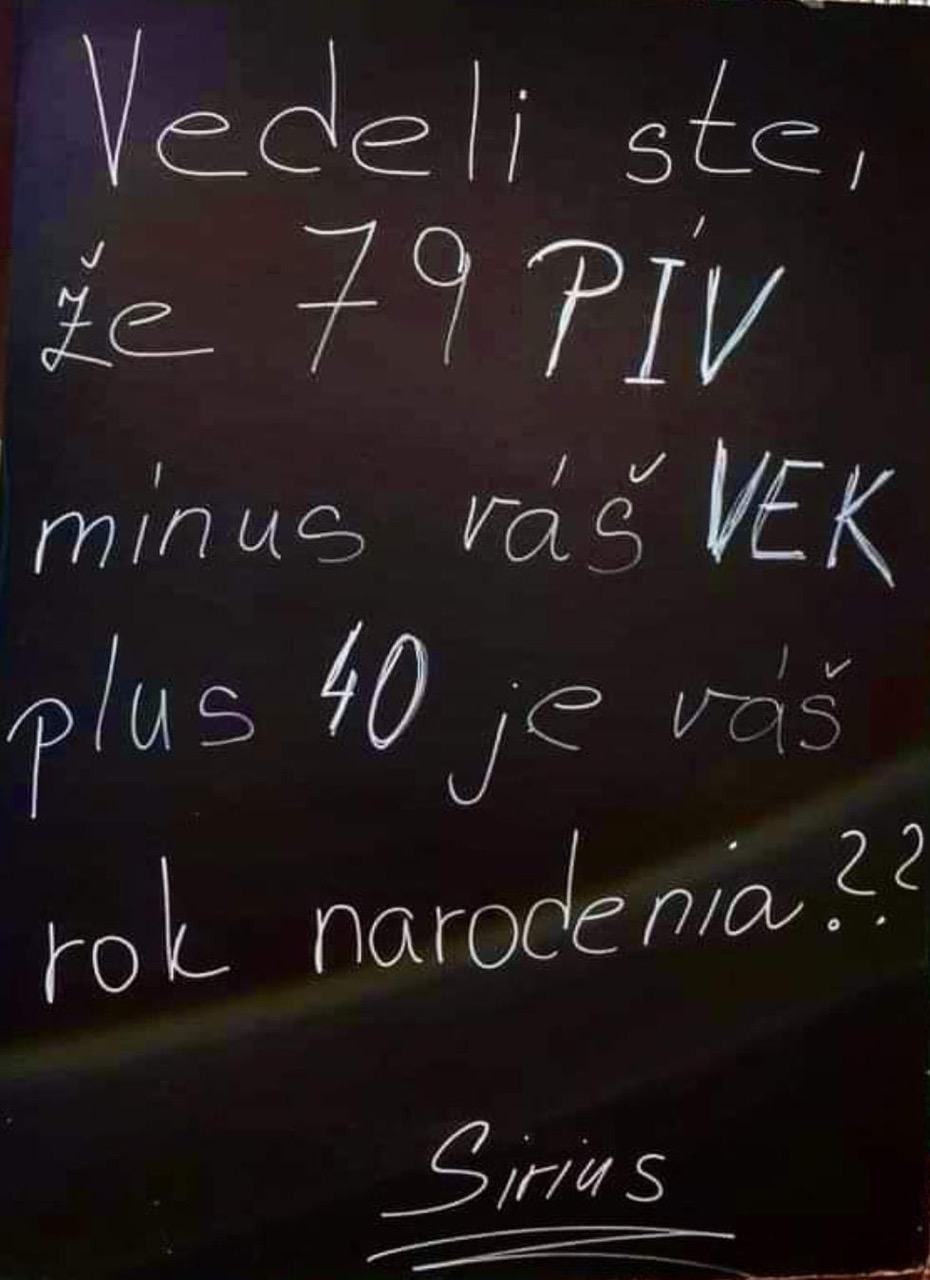 Vedeli ste,
že 79 PÍV
mínus váš VEK
plus 40 je váš
rok narodenia??
Sirius